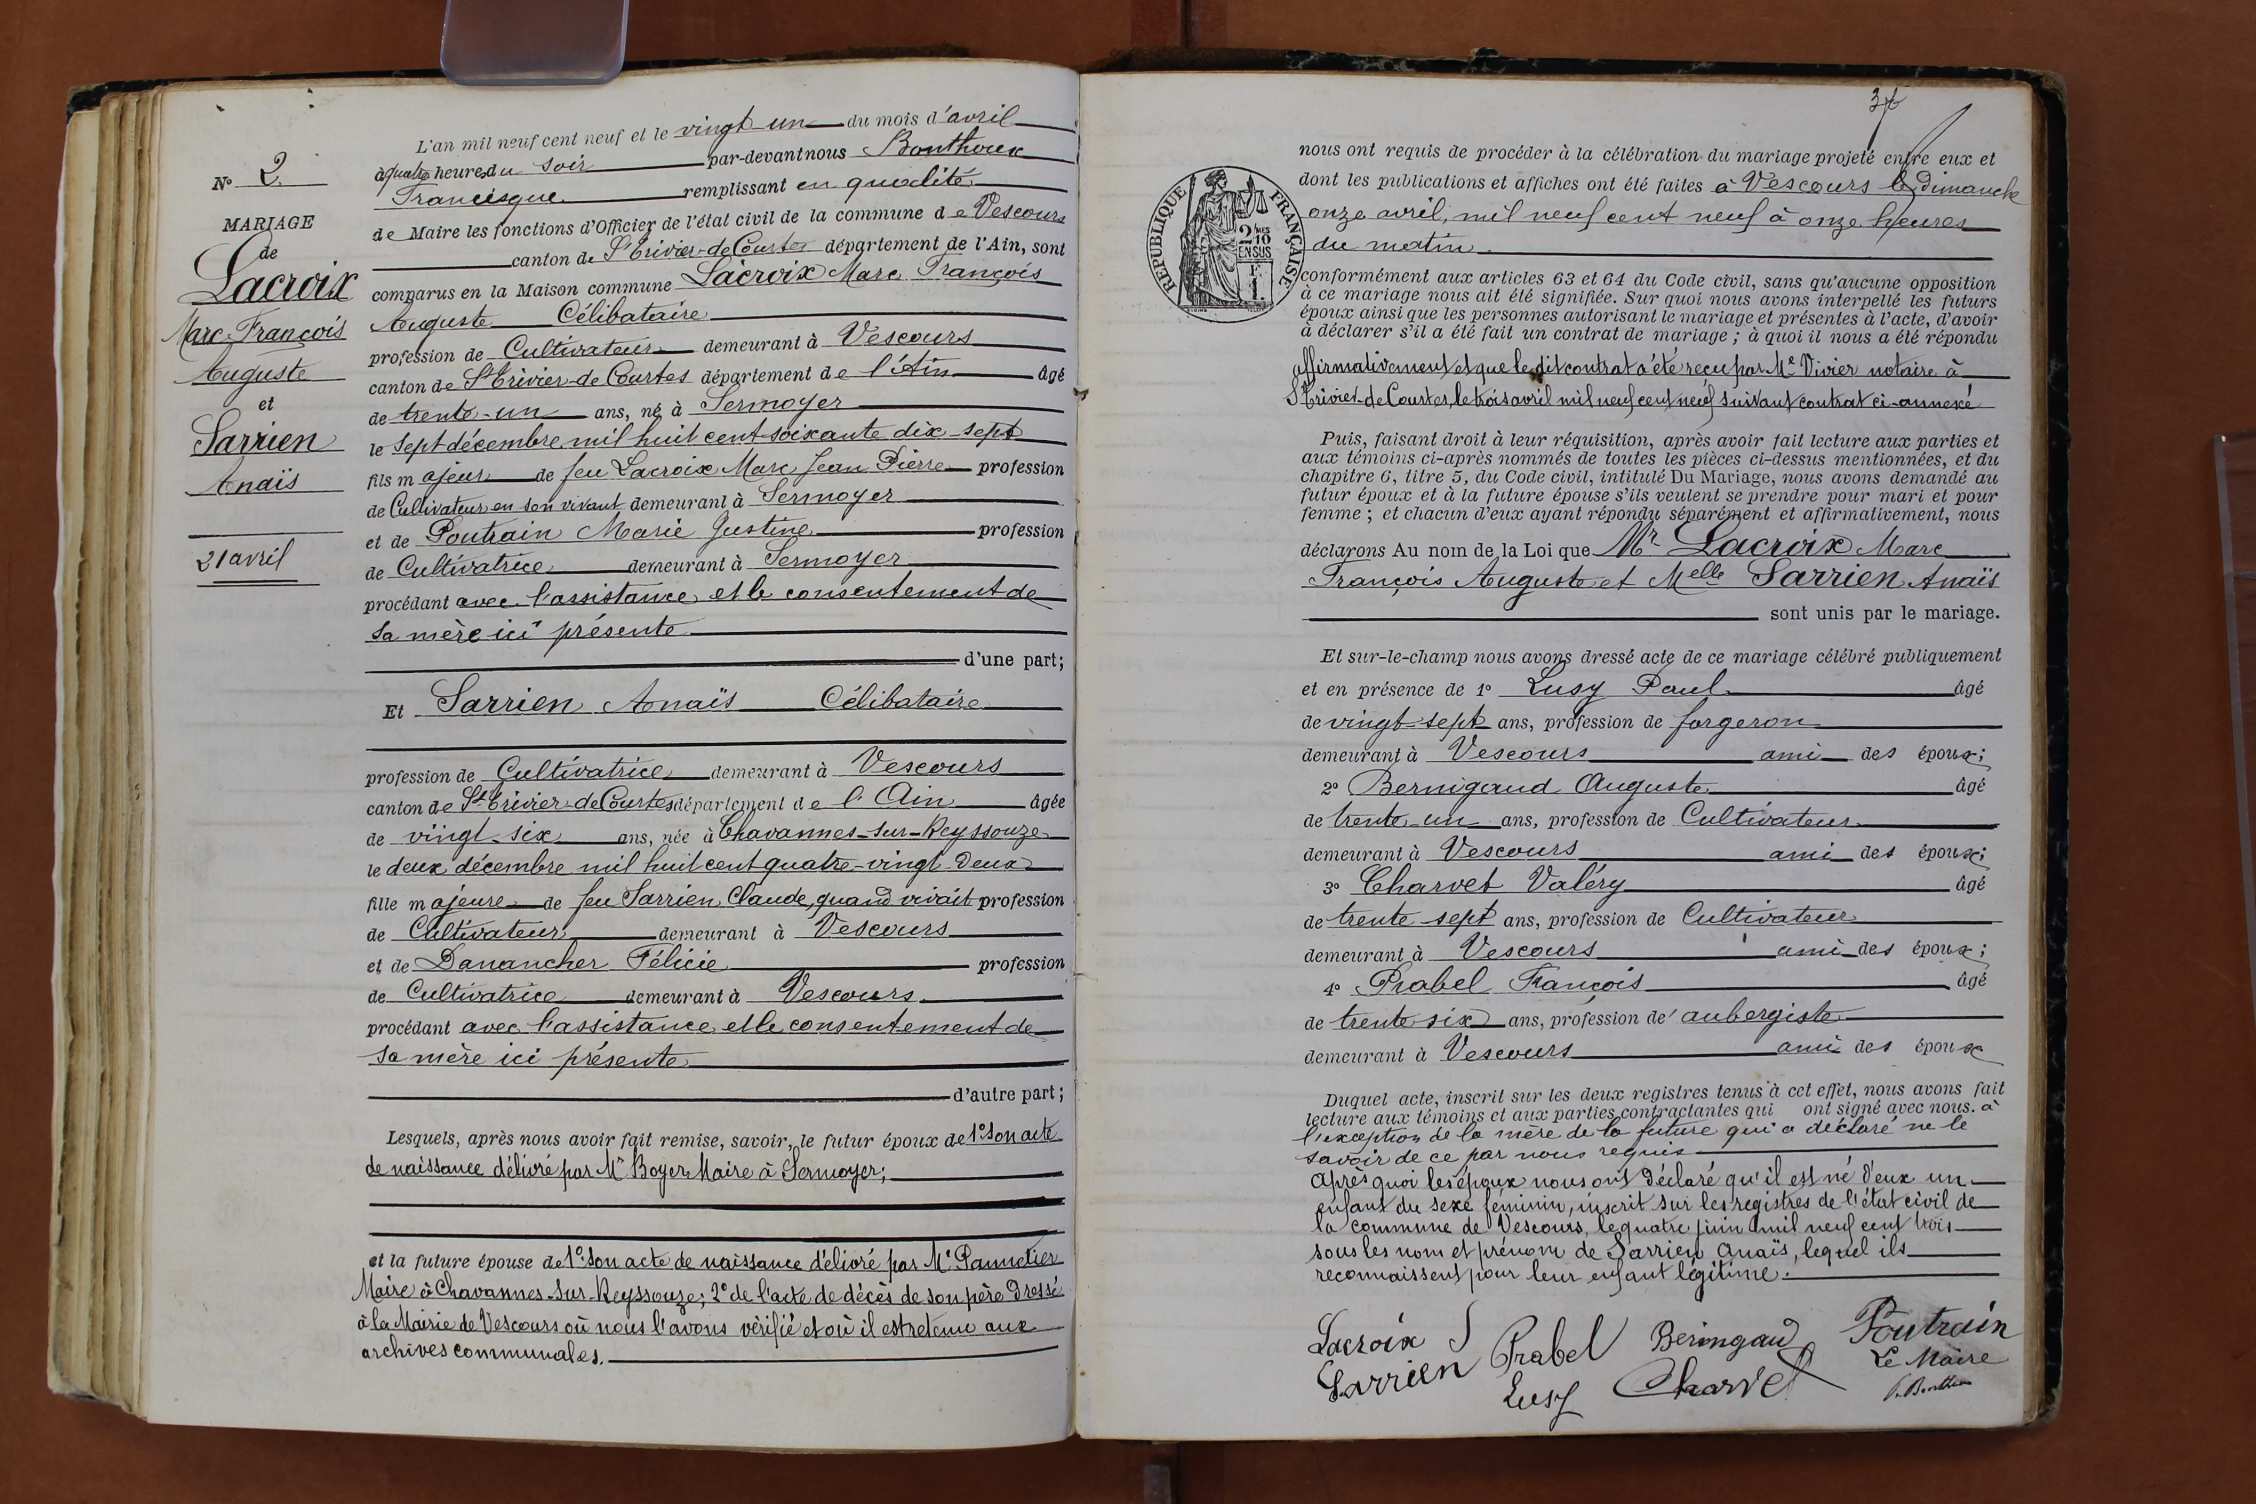 L'an mil neuf cent neuf et le vingt un du mois d'avril
N° 2
à quatre heures du soir par-devant nous Bonthoux
Francisque remplissant en qualité
MARIAGE
de Maire les fonctions d'Officier de l'état civil de la commune de Vescours
de
canton de St Trivier-de-Courtes département de l'Ain, sont
Lacroix
comparus en la Maison commune Lacroix Marc François
Marc François
Auguste Célibataire
profession de Cultivateur demeurant à Vescours
Auguste
canton de St Trivier-de-Courtes département de l'Ain âgé
et
de trente-un ans, né à Sermoyer
Sarrien
le sept décembre mil huit cent soixante dix-sept
Anaïs
fils majeur de feu Lacroix Marc Jean Pierre profession
de Cultivateur en son vivant demeurant à Sermoyer
et de Poutrain Marie Justine profession
21 avril
de Cultivatrice demeurant à Sermoyer
procédant avec l'assistance et le consentement de
sa mère ici présente
d'une part;
Et Sarrien Anaïs Célibataire
profession de Cultivatrice demeurant à Vescours
canton de St Trivier-de-Courtes département de l'Ain âgée
de vingt-six ans, née à Chavannes-sur-Reyssouze
le deux décembre mil huit cent quatre-vingt-deux
fille majeure de feu Sarrien Claude, quand vivait profession
de Cultivateur demeurant à Vescours
et de Danancher Félicie profession
de Cultivatrice demeurant à Vescours
procédant avec l'assistance et le consentement de
sa mère ici présente
d'autre part;
Lesquels, après nous avoir fait remise, savoir, le futur époux de 1° son acte
de naissance délivré par Mr Boyer Maire à Sermoyer;
et la future épouse de 1° son acte de naissance délivré par Mr Pannetier
Maire à Chavannes-sur-Reyssouze; 2° de l'acte de décès de son père dressé
à la Mairie de Vescours où nous l'avons vérifié et où il est retenu aux
archives communales.
nous ont requis de procéder à la célébration du mariage projeté entre eux et
dont les publications et affiches ont été faites à Vescours le dimanche
onze avril, mil neuf cent neuf à onze heures
du matin
RÉPUBLIQUE FRANÇAISE
2/10
EN SUS
conformément aux articles 63 et 64 du Code civil, sans qu'aucune opposition
à ce mariage nous ait été signifiée. Sur quoi nous avons interpellé les futurs
époux ainsi que les personnes autorisant le mariage et présentes à l'acte, d'avoir
à déclarer s'il a été fait un contrat de mariage; à quoi il nous a été répondu
affirmativement et que le dit contrat a été reçu par Me Vivier notaire à
St Trivier-de-Courtes, le trois avril mil neuf cent neuf suivant contrat ci-annexé
Puis, faisant droit à leur réquisition, après avoir fait lecture aux parties et
aux témoins ci-après nommés de toutes les pièces ci-dessus mentionnées, et du
chapitre 6, titre 5, du Code civil, intitulé Du Mariage, nous avons demandé au
futur époux et à la future épouse s'ils veulent se prendre pour mari et pour
femme; et chacun d'eux ayant répondu séparément et affirmativement, nous
déclarons Au nom de la Loi que Mr Lacroix Marc
François Auguste et Melle Sarrien Anaïs
sont unis par le mariage.
Et sur-le-champ nous avons dressé acte de ce mariage célébré publiquement
et en présence de 1° Lusy Paul âgé
de vingt-sept ans, profession de forgeron
demeurant à Vescours ami des époux;
2° Bernigaud Auguste âgé
de trente-un ans, profession de Cultivateur
demeurant à Vescours ami des époux;
3° Charvet Valéry âgé
de trente-sept ans, profession de Cultivateur
demeurant à Vescours ami des époux;
4° Prabel François âgé
de trente six ans, profession d'aubergiste
demeurant à Vescours ami des époux
Duquel acte, inscrit sur les deux registres tenus à cet effet, nous avons fait
lecture aux témoins et aux parties contractantes qui ont signé avec nous. à
l'exception de la mère de la future qui a déclaré ne le
savoir de ce par nous requis
Après quoi les époux nous ont déclaré qu'il est né d'eux un
enfant du sexe féminin, inscrit sur les registres de l'état civil de
la commune de Vescours, le quatre juin mil neuf cent trois
sous les nom et prénom de Sarrien Anaïs, lequel ils
reconnaissent pour leur enfant légitime.
Lacroix Prabel Beringaud Poutrain
Sarrien Lusy Charvet Le Maire